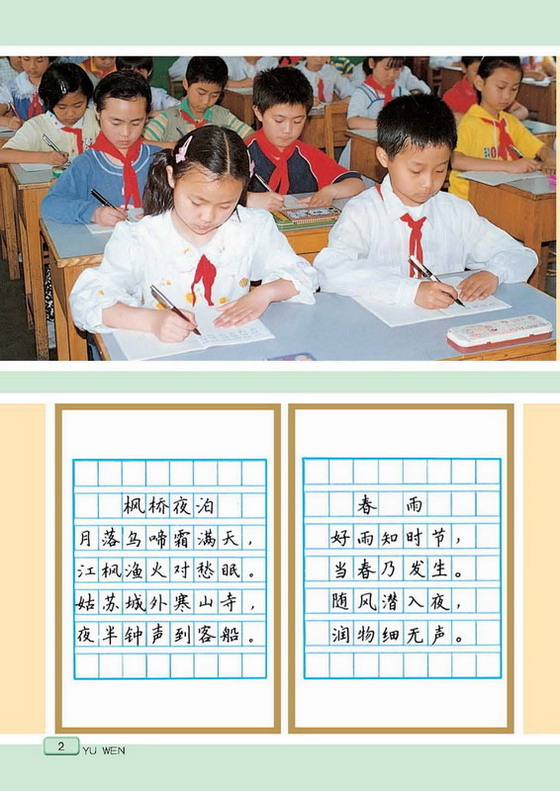 枫桥夜泊
月落乌啼霜满天，
江枫渔火对愁眠。
姑苏城外寒山寺，
夜半钟声到客船。
春 雨
好雨知时节，
当春乃发生。
随风潜入夜，
润物细无声。
2 YU WEN